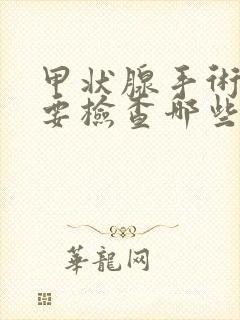 甲状腺手術
要檢查哪些
華龍网